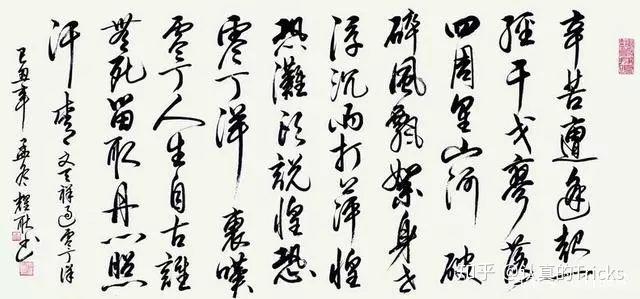 辛苦遭逢起一
經干戈寥落
四周星山河破
碎風飄絮身世
浮沉雨打萍惶
恐灘頭說惶恐
零丁洋裏嘆
零丁人生自古誰
無死留取丹心照
汗青 文天祥過零丁洋
己丑年 孟冬 書
知乎 @认真的Tricks